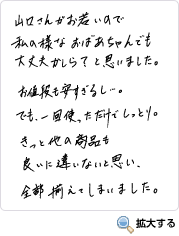 山口さんがお若いので
私の様な おばあちゃんでも
大丈夫かしら？と思いました。
お値段も安すぎるし…。
でも、一回使っただけでしっとり。
きっと他の商品も
良いに違いないと思い、
全部揃えてしまいました。
拡大する